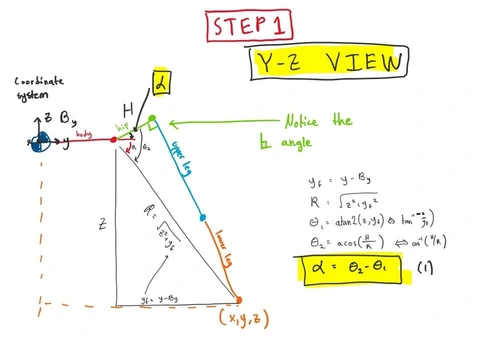 STEP 1
Y-Z VIEW
α
Coordinate
system
H
z By
y
body
hip
α
θ1
θ2
Notice the
angle
upper leg
z
R = √z²+yf²
lower leg
yf = y-By
(x,y,z)
yf = y-By
R = √z²+yf²
θ1 = atan2(z,yf) ⇔
θ2 = acos(H/R) ⇔ cos⁻¹(H/R)
α = θ2-θ1 (1)